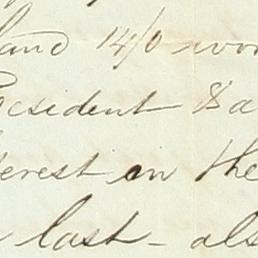 land 14/0 wor
resident & a
erest in the
last - als